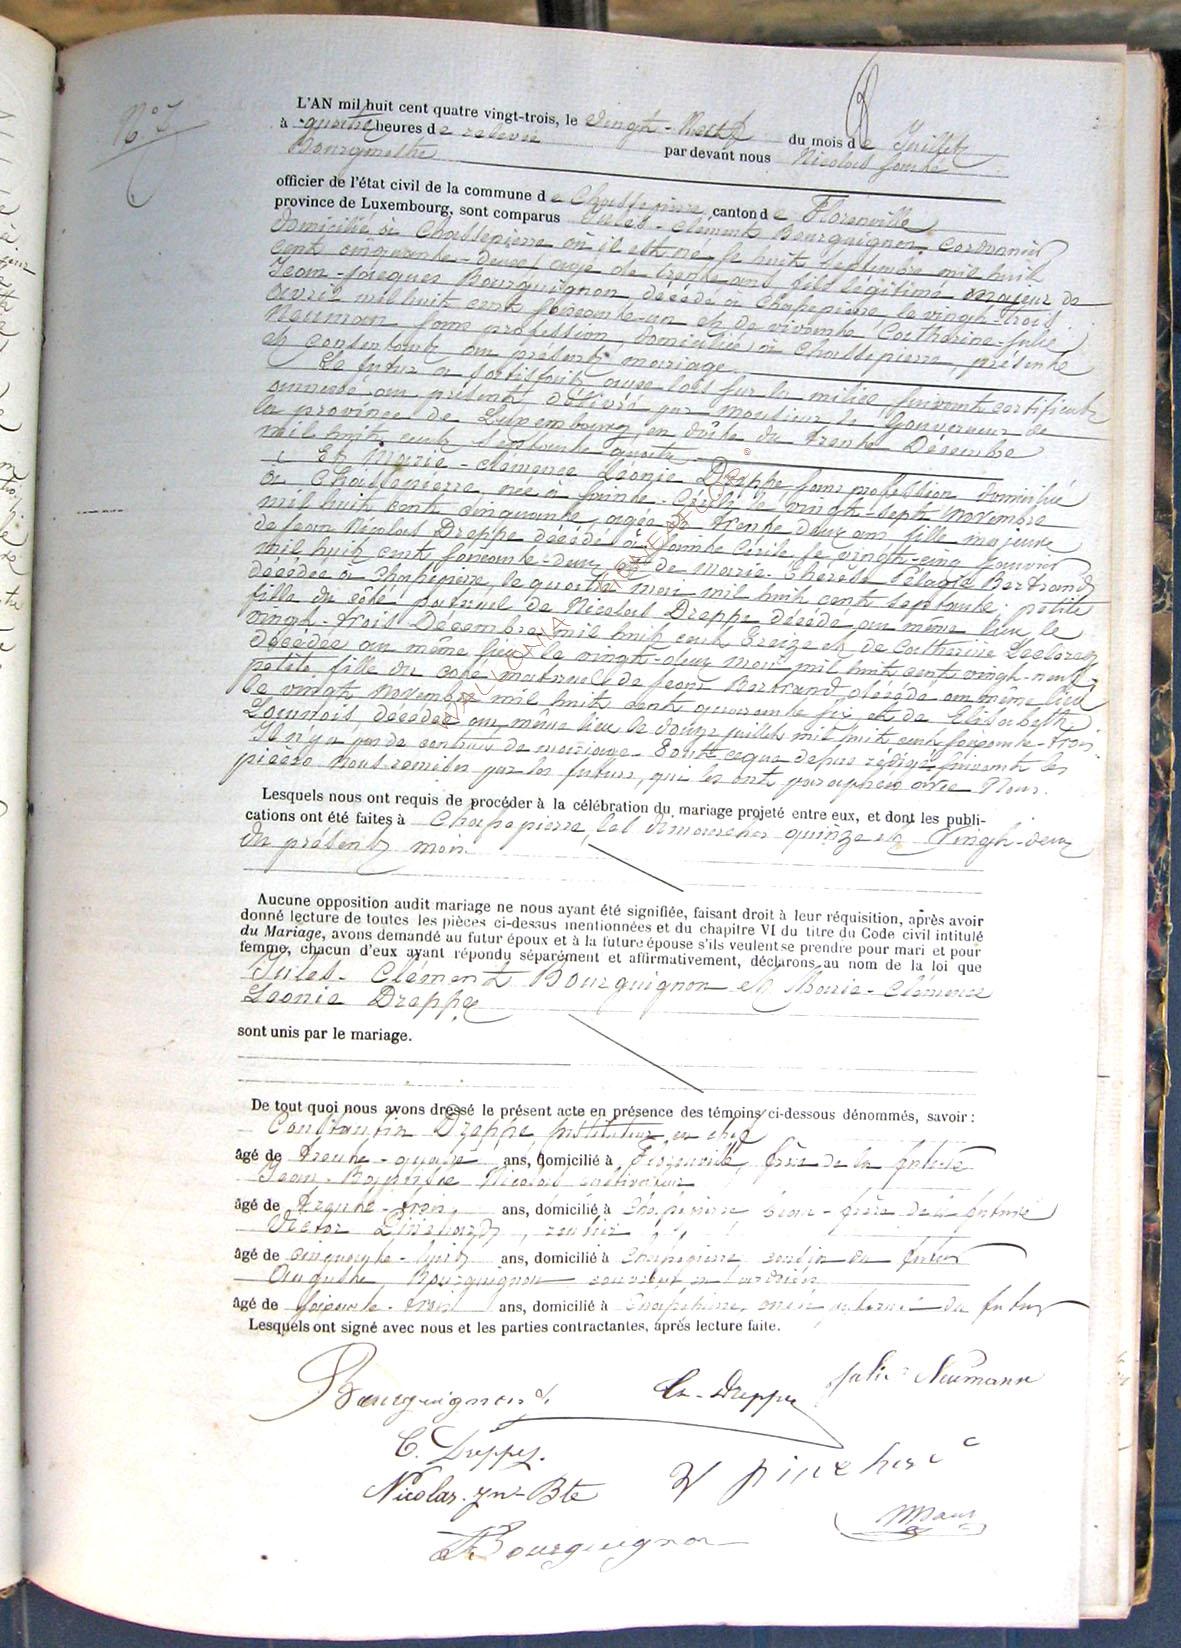 N° 7
L'AN mil huit cent quatre vingt-trois, le vingt-neuf du mois de Juillet
à quatre heures de relevée par devant nous Nicolas
Bourgmestre
officier de l'état civil de la commune de Chassepierre, canton de Florenville
province de Luxembourg, sont comparus Jules-Clément Bourguignon Cordonnier
domicilié à Chassepierre où il est né le huit septembre mil huit
cent cinquante-deux, âgé de trente ans, fils légitime majeur de
Jean-Jacques Bourguignon, décédé à Chassepierre le vingt-trois
avril mil huit cent soixante-un et de vivante Catherine-Julie
Neumann sans profession, domiciliée à Chassepierre, présente
et consentant au présent mariage.
Le futur a satisfait aux lois sur la milice suivant certificat
annexé au présent délivré par monsieur le Gouverneur de
la province de Luxembourg, en date du trente Décembre
mil huit cent septante-quatre
Et Marie-Clémence Léonie Dreppe sans profession domicilié
à Chassepierre, née à Sainte-Cécile le vingt-sept novembre
mil huit cent cinquante, agée de trente deux ans fille majeure
de Jean Nicolas Dreppe décédé à Sainte Cécile le vingt-cinq
mil huit cent soixante-deux et de Marie-Thérèse Pélagie Bertrand
décédée à Chassepierre, le quatre mai mil huit cent septante; petite
fille du côté paternel de Nicolas Dreppe décédé au même lieu le
vingt-trois Décembre mil huit cent treize et de Catherine
décédée au même lieu le vingt-deux mil huit cent vingt-neuf
petite fille du coté maternel de Jean Bertrand, décédé au même lieu
le vingt Novembre mil huit cent quarante six et de Elisabeth
décédée au même lieu le douze juillet mil huit cent soixante-trois
Il n'y a pas de contrat de mariage. Tout ce que dessus rédigé suivant les
pièces nous remises par les futurs, que les ont paraphées avec Nous.
Lesquels nous ont requis de procéder à la célébration du mariage projeté entre eux, et dont les publi-
cations ont été faites à Chassepierre, les dimanches quinze et Vingt-deux
du présent mois
Aucune opposition audit mariage ne nous ayant été signifiée, faisant droit à leur réquisition, après avoir
donné lecture de toutes les pièces ci-dessus mentionnées et du chapitre VI du titre du Code civil intitulé
du Mariage, avons demandé au futur époux et à la future épouse s'ils veulent se prendre pour mari et pour
femme, chacun d'eux ayant répondu séparément et affirmativement, déclarons au nom de la loi que
Jules-Clément Bourguignon et Marie-Clémence
Léonie Dreppe
sont unis par le mariage.
De tout quoi nous avons dressé le présent acte en présence des témoins ci-dessous dénommés, savoir :
Constantin Dreppe Instituteur en chef
âgé de trente-quatre ans, domicilié à frère de la future
Jean-Baptiste Nicolas cultivateur
âgé de trente-trois ans, domicilié à Chassepierre beau-frère de la future
Victor rentier
âgé de cinquante-huit ans, domicilié à Chassepierre cousin du futur
Auguste Bourguignon
âgé de soixante-trois ans, domicilié à Chassepierre, oncle paternel du futur
Lesquels ont signé avec nous et les parties contractantes, après lecture faite.
Bourguignon J. Ce-Dreppe Julie Neumann
C. Dreppe.
Nicolas. Jn Bte
Bourguignon